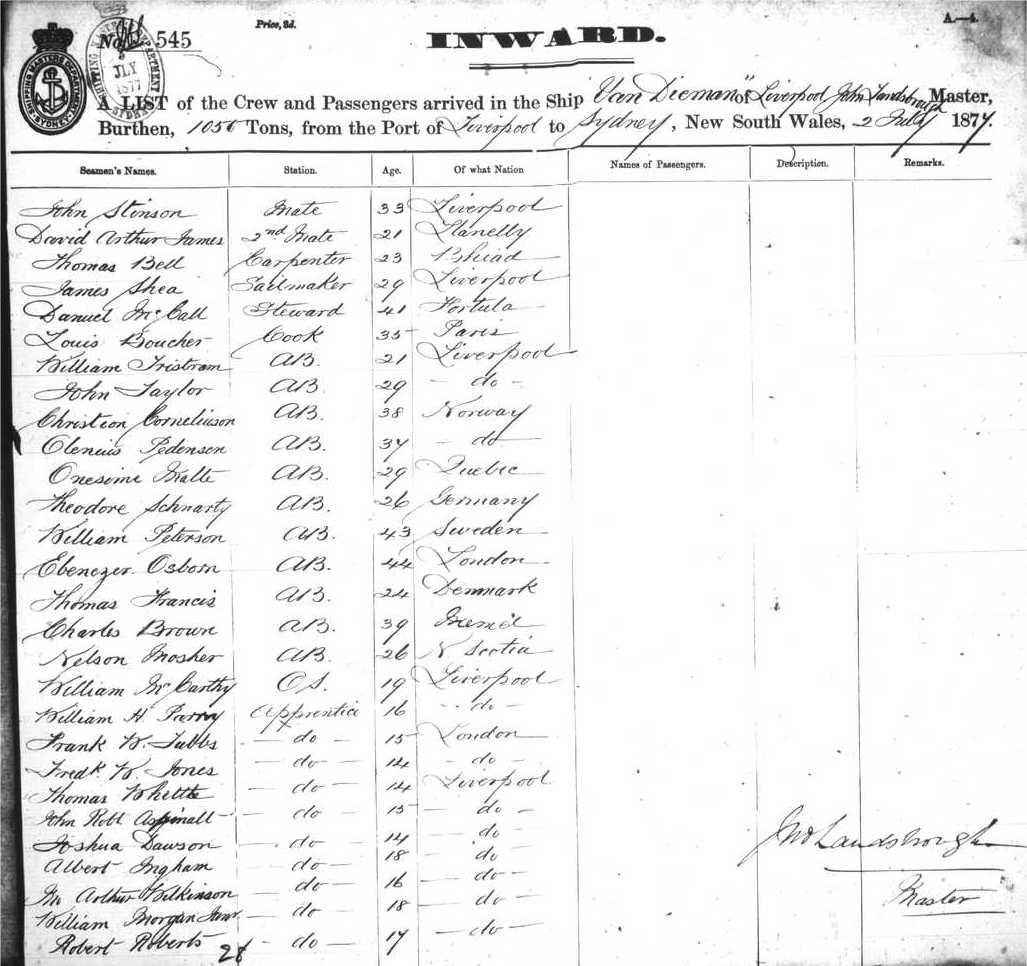 Price, 3d.
A.—4.
No. 545
INWARD.
SHIPPING MASTERS DEPARTMENT SYDNEY
SHIPPING MASTERS DEPARTMENT JLY 1877 SYDNEY
A LIST of the Crew and Passengers arrived in the Ship "Van Dieman" of Liverpool John Landsborough Master,
Burthen, 1056 Tons, from the Port of Liverpool to Sydney, New South Wales, 2 July 1877.
Seamen's Names. Station. Age. Of what Nation Names of Passengers. Description. Remarks.
John Stinson Mate 33 Liverpool
David Arthur James 2nd Mate 21 Llanelly
Thomas Bell Carpenter 23 B'head
James Shea Sailmaker 29 Liverpool
Daniel McCall Steward 41
Louis Boucher Cook 35 Paris
William Tristram AB. 21 Liverpool
John Taylor AB. 29 - do -
Christian Corneliuson AB. 38 Norway
Olenius Pedensen AB. 37 - do
Onesime Matte AB. 29 Quebec
Theodore Schnarty AB. 26 Germany
William Peterson AB. 43 Sweden
Ebenezer Osborn AB. 44 London
Thomas Francis AB. 24 Denmark
Charles Brown AB. 39 Memel
Nelson Mosher AB. 26 N Scotia
William McCarthy OS. 19 Liverpool
William H Parry Apprentice 16 - do -
Frank W. Tubbs - do - 15 London
Fredk W. Jones - do - 14 - do -
Thomas Whettle - do - 14 Liverpool
John Robt Aspinall - do 15 - do
Joshua Dawson - do - 14 - do
Albert Ingham - do - 18 - do
Jno Arthur Wilkinson - do 16 - do -
William Morgan - do 18 - do -
Robert Roberts - do - 17 - do -
28
Jno Landsborough
Master